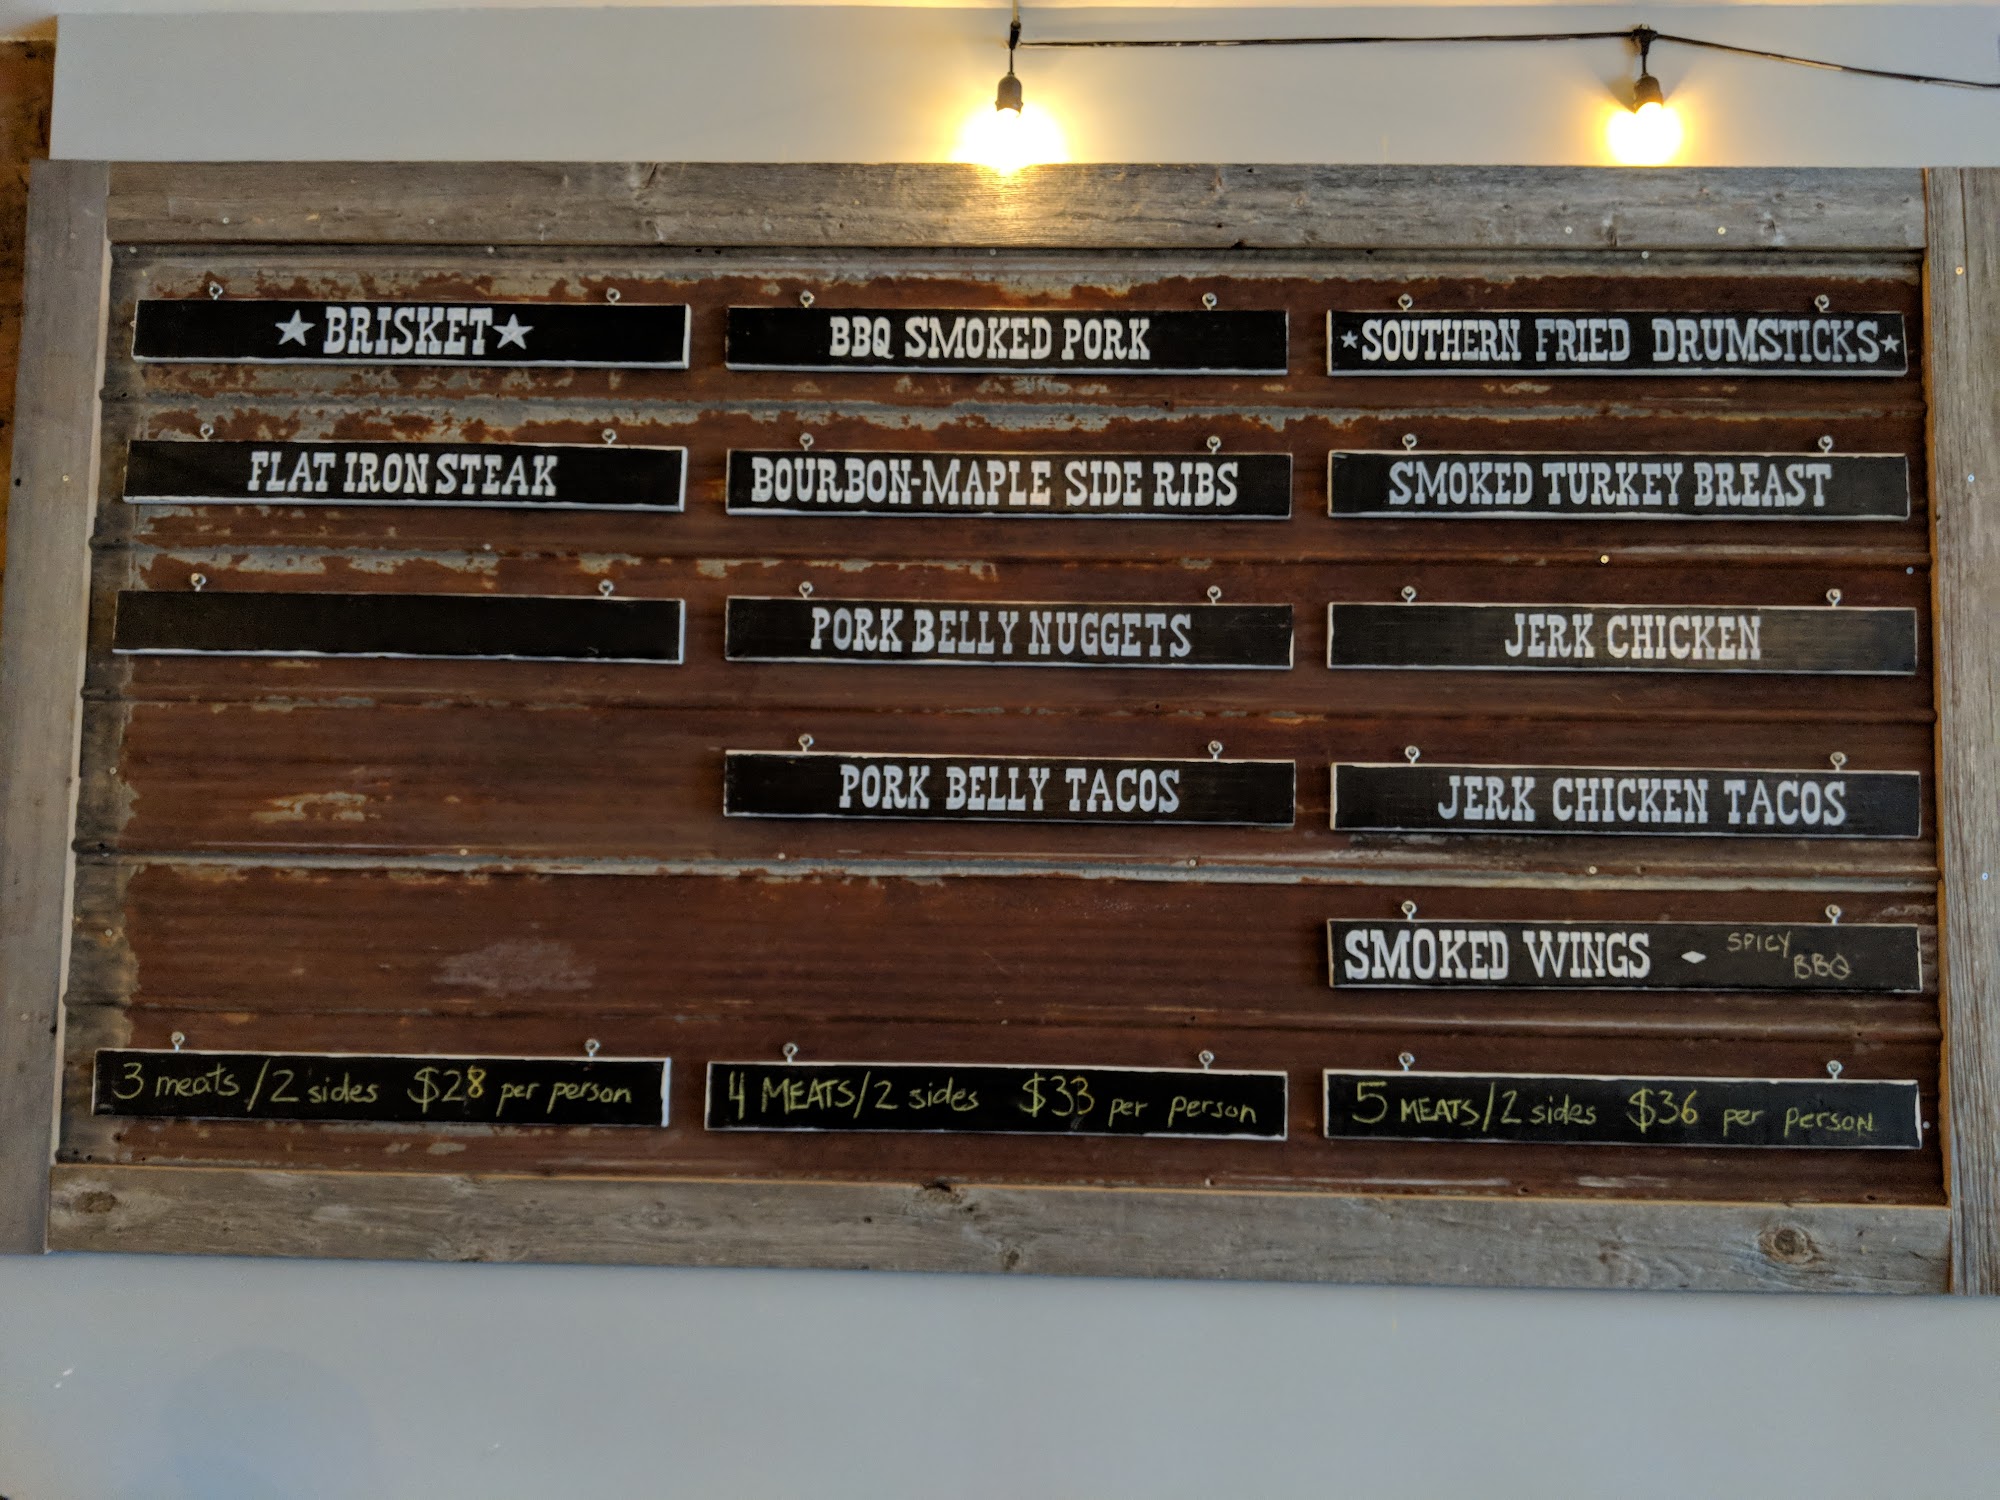 ★BRISKET★
BBQ SMOKED PORK
★SOUTHERN FRIED DRUMSTICKS★
FLAT IRON STEAK
BOURBON-MAPLE SIDE RIBS
SMOKED TURKEY BREAST
PORK BELLY NUGGETS
JERK CHICKEN
PORK BELLY TACOS
JERK CHICKEN TACOS
SMOKED WINGS - SPICY
BBQ
3 meats/2 sides $28 per person
4 MEATS/2 sides $33 per person
5 MEATS/2 sides $36 per person